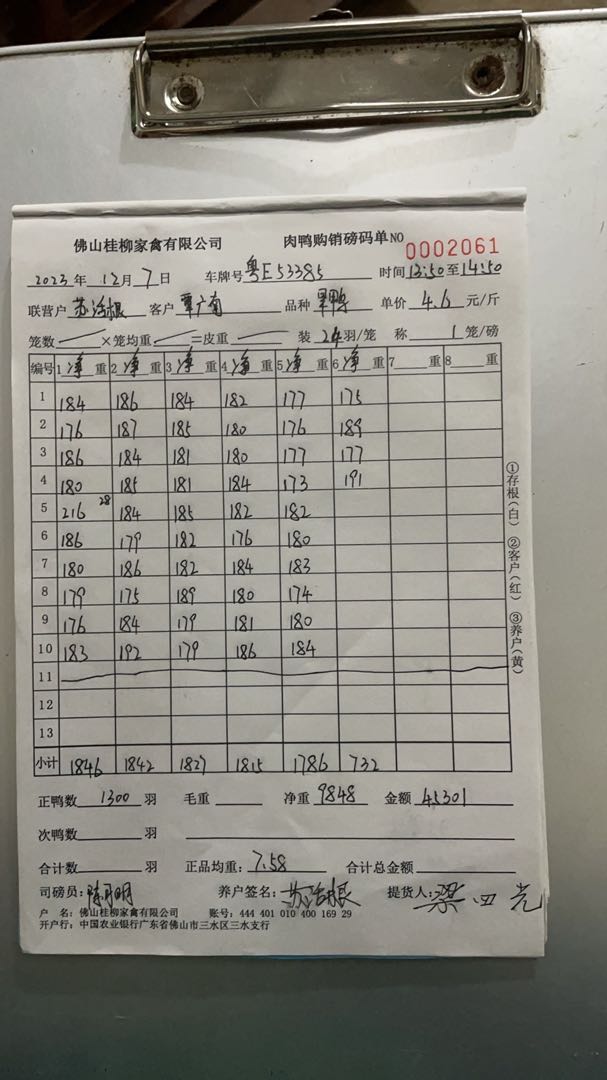 佛山桂柳家禽有限公司 肉鸭购销磅码单 NO 0002061
2023年 12月 7日 车牌号 粤E53385 时间 13:50 至 14:50
联营户 苏活根 客户 覃广南 品种 单价 4.6 元/斤
笼数 × 笼均重 = 皮重 装 24 羽/笼 称 1 笼/磅
编号 1 净 重 2 净 重 3 净 重 4 净 重 5 净 重 6 净 重 7 重 8 重
1 184 186 184 182 177 175
2 176 187 185 180 176 189
3 186 184 181 180 177 177
4 180 185 181 184 173 191
5 216 28 184 185 182 182
6 186 179 182 176 180
7 180 186 182 184 183
8 179 175 189 180 174
9 176 184 179 181 180
10 183 192 179 186 184
11
12
13
小计 1846 1842 1827 1815 1786 732
正鸭数 1300 羽 毛重 净重 9848 金额 45301
次鸭数 羽
合计数 羽 正品均重: 7.58 合计总金额
司磅员: 养户签名: 苏活根 提货人: 梁四光
户 名: 佛山桂柳家禽有限公司 账号: 444 401 010 400 169 29
开户行: 中国农业银行广东省佛山市三水区三水支行
①存根(白) ②客户(红) ③养户(黄)